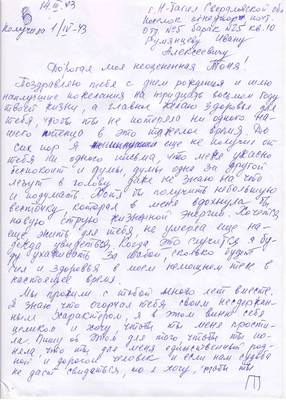 14.III.43
получено 1/IV-43
г. Н-Тагил Свердловской обл.
поселок огнеупор. почт.
отд №5 барак №25 кв. 10
Румянцеву Ивану
Алексеевичу
Дорогая моя неоцененная Тоня!
Поздравляю тебя с днем рождения и шлю
наилучшие пожелания на тридцать восьмом году
твоей жизни, а главное желаю здоровья для
тебя, чтобы ты не потеряла ни одного на-
шего птенца в это тяжелое время. До
сих пор я еще не получил от
тебя ни одного письма, что меня ужасно
беспокоит и думы, думы одна за другой
лезут в голову даже не знаю на что
и подумать. Хотя бы получить небольшую
весточку, которая в меня вдохнула бы
новую струю жизненной энергии. Хочется
еще жить для тебя, не умерла еще на-
дежда увидеться. Когда это случится я бу-
ду ухаживать за тобой, сколько будет
сил и здоровья в моем немощном теле в
настоящее время.
Мы прожили с тобой много лет вместе.
Я знаю что огорчал тебя своим несдержан-
ным характером, я в этом виню себя
целиком и хочу, чтобы ты меня прости-
ла. Пишу об этом для того чтобы ты по-
няла, что ты для меня единственный род-
ной и дорогой человек и если нам судьба
не даст свидаться, но я хочу, чтобы ты